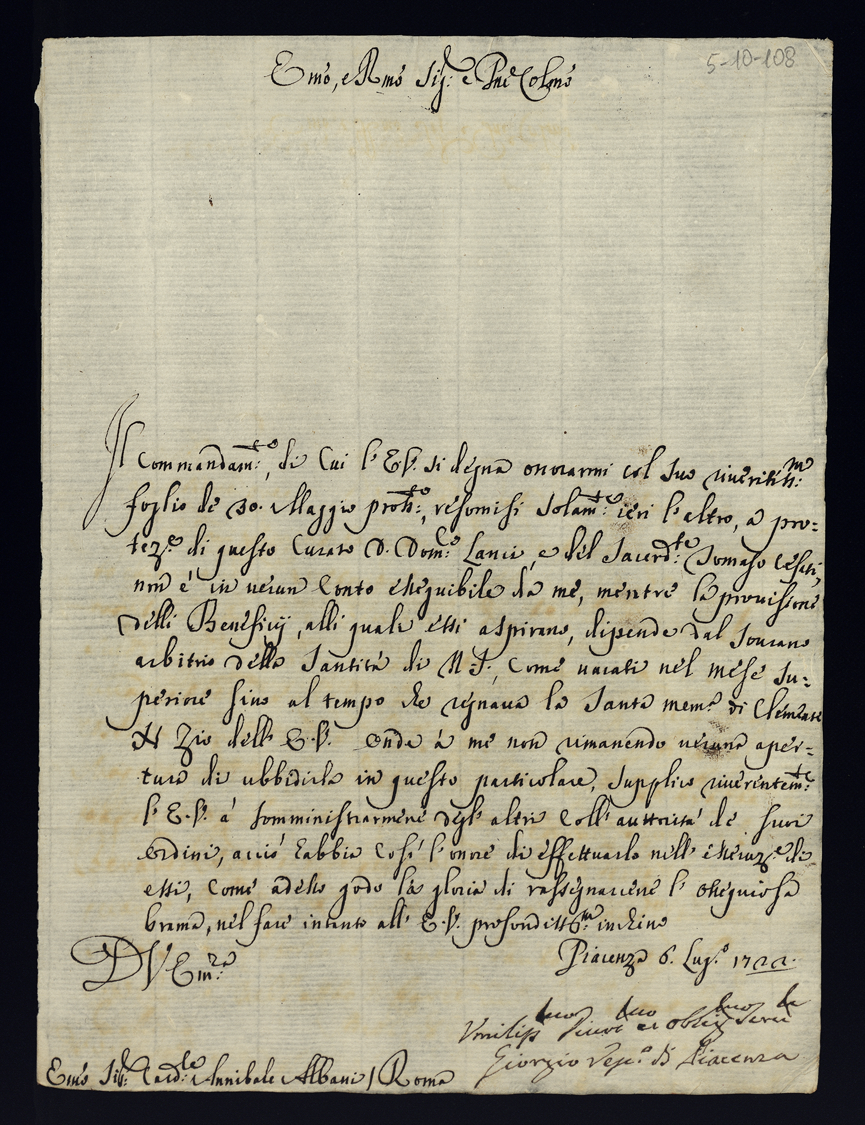 5-10-108
Emo, e Rmo Sig.r e Pne Colmo
Il Commandam.to, di Cui l'E.V. si degna onorarmi col suo riveritiss.mo
foglio de 30. Maggio pross.o, resomisi solam.te ieri l'altro, a pro-
tez.e di questo Curato D. Dom.co Lanci, e del Sacerd.te Tomaso
non é in verun Conto eseguibile da me, mentre la provisione
delli Beneficij, alli quali essi aspirano, dipende dal sourano
arbitrio della Santità di N.S., Come vacati nel mese su-
periore sino al tempo che regnava la Santa mem.a di Clemente
XI Zio dell'E.V. Onde à me non rimanendo veruna aper-
tura di ubbidirla in questo particolare, supplico riverentem.te
l'E.V. á somministrarmene degl'altri Coll'auttoritá de suoi
Ordini, acció habbia Cosí l'onore di effettuarlo nell'esecuz.e di
essi, Come adesso godo la gloria di rassegnarlene l'ossequiosa
brama, nel fare intanto all'E.V. profondiss.mo inchino
D V Em.za
Piacenza 6. Lug.o 1722.
Vmiliss.mo Divot.mo et Oblig.mo Serv.re
Giorgio Vesc.o di Piacenza
Emo Sig.r Card.le Annibale Albani / Roma